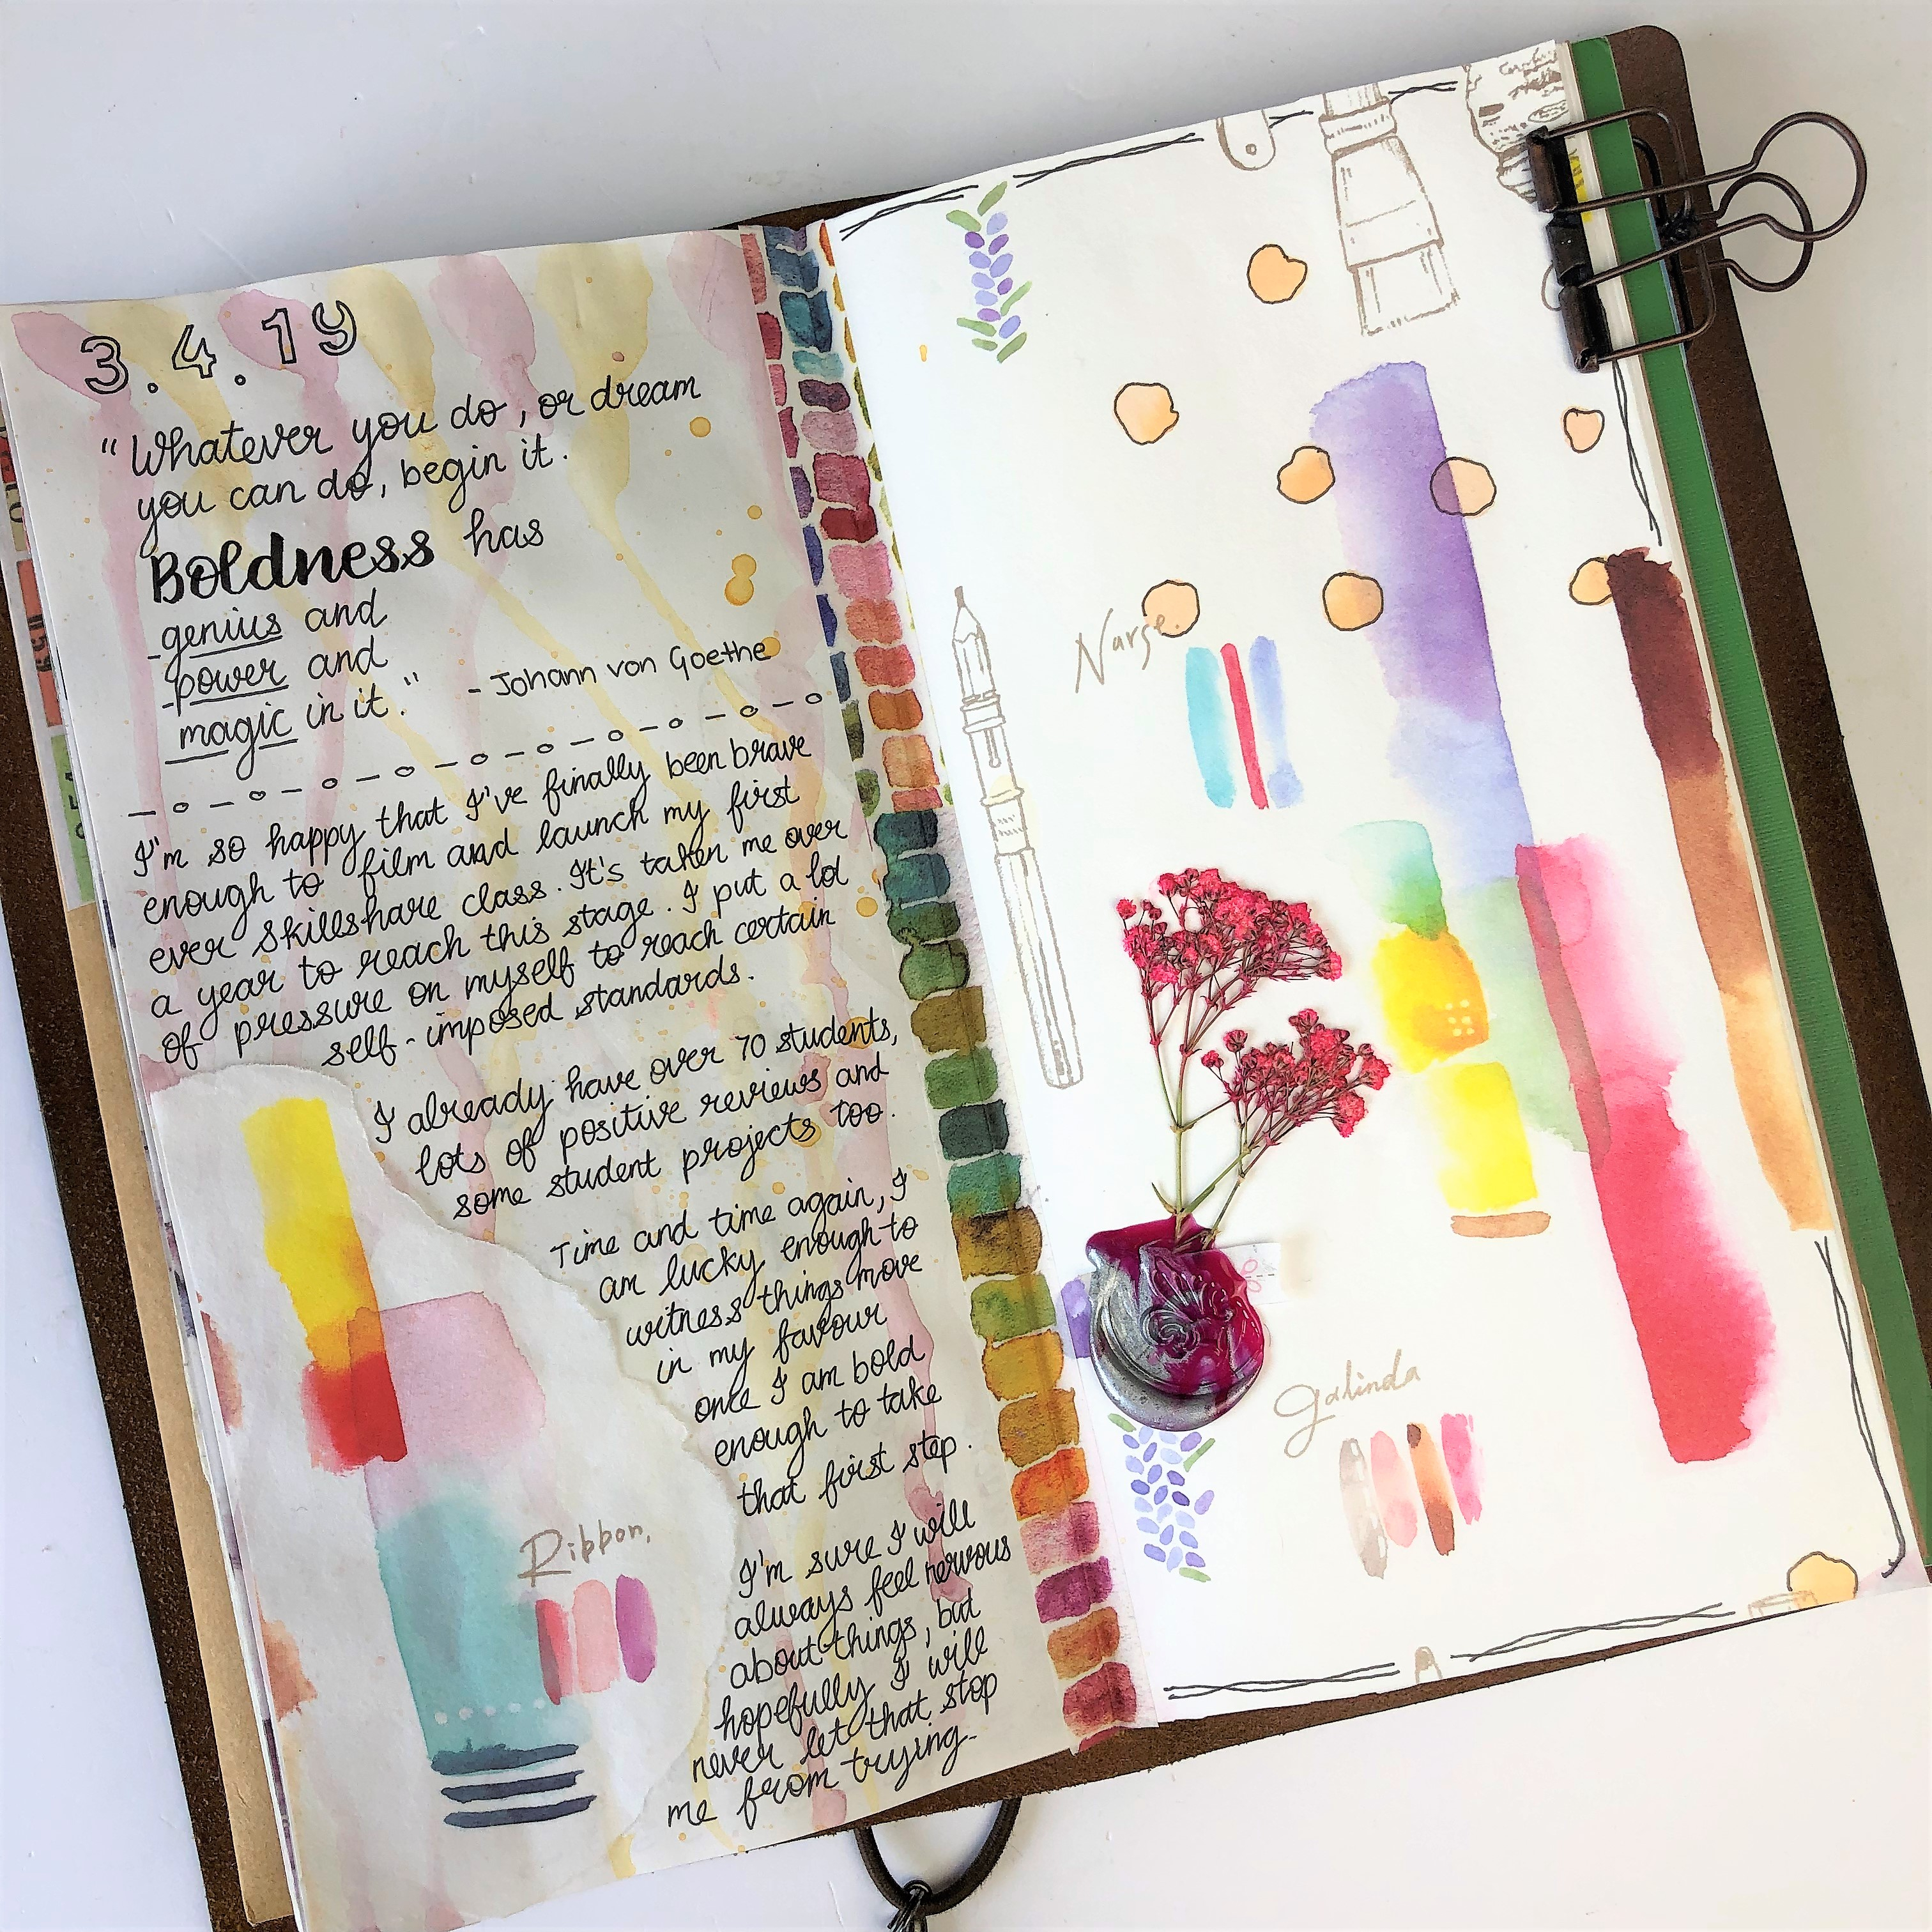 3.4.19
"Whatever you do, or dream
you can do, begin it.
Boldness has
genius and
power and
magic in it." - Johann von Goethe
I'm so happy that I've finally been brave
enough to film and launch my first
ever skillshare class. It's taken me over
a year to reach this stage. I put a lot
of pressure on myself to reach certain
self-imposed standards.
I already have over 70 students,
lots of positive reviews and
some student projects too.
Time and time again, I
am lucky enough to
witness things move
in my favour
once I am bold
enough to take
that first step.
I'm sure I will
always feel nervous
about things, but
hopefully I will
never let that stop
me from trying.
Ribbon,
Narse.
Galinda